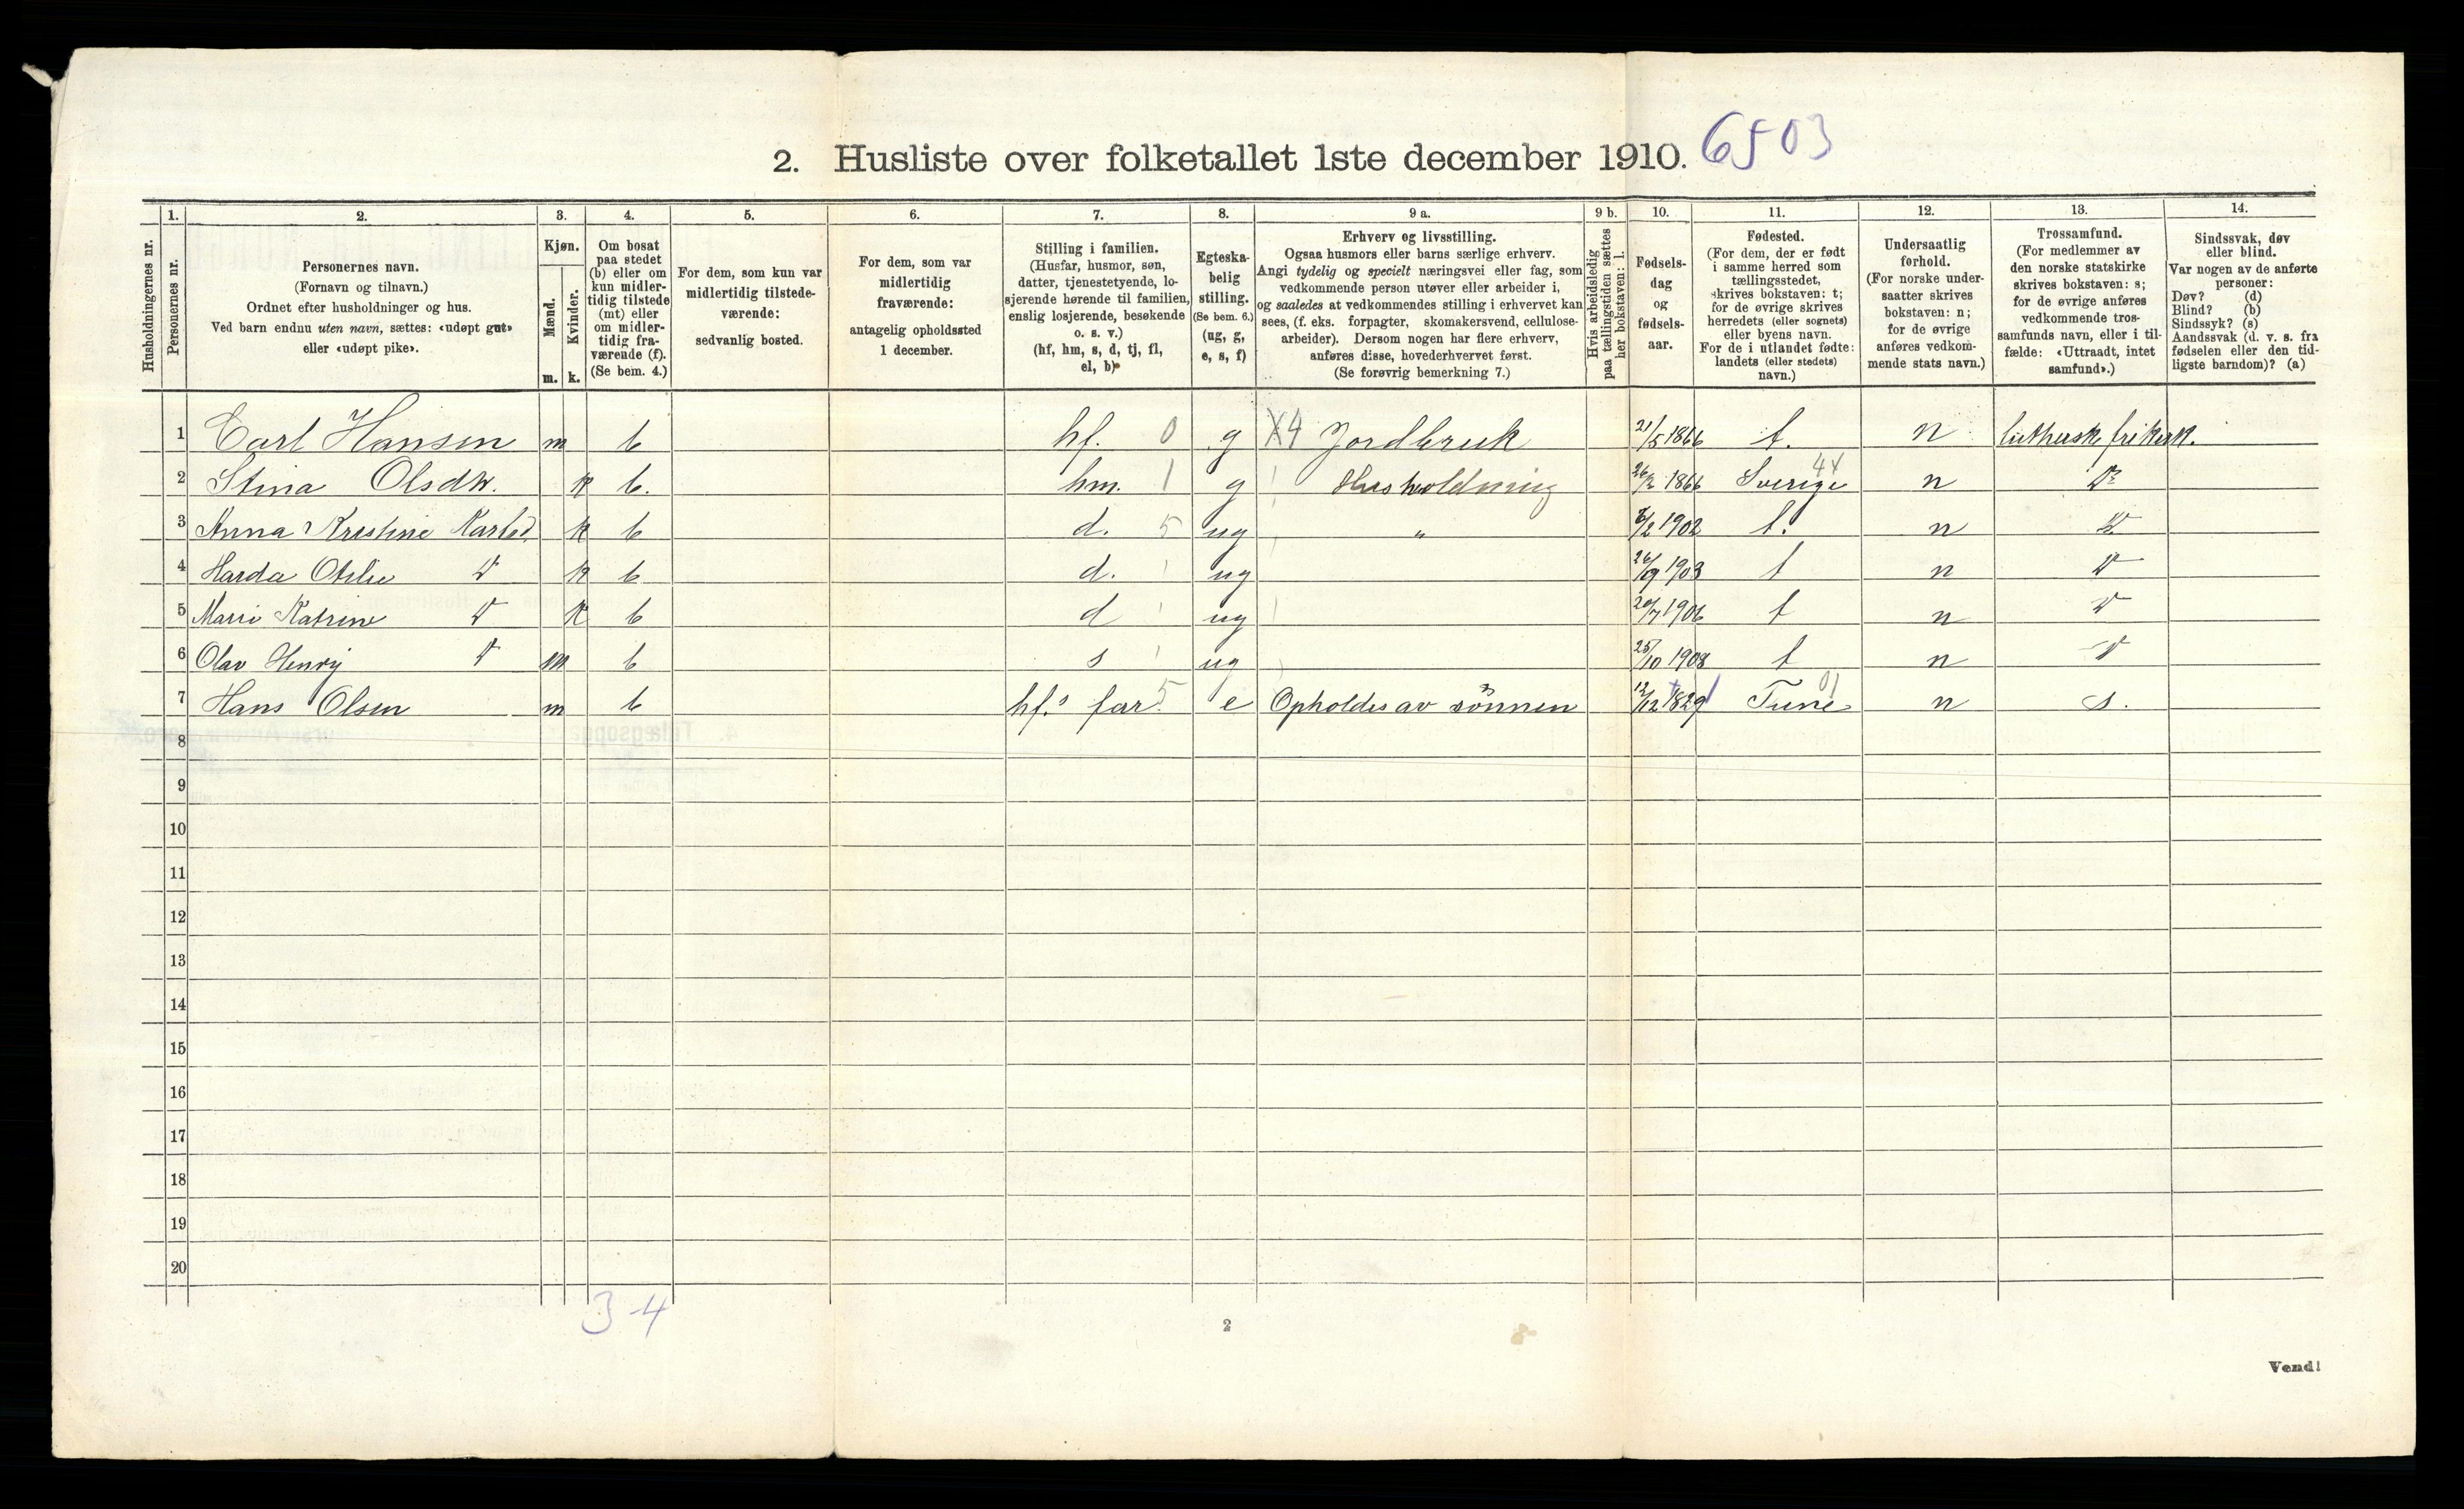 2. Husliste over folketallet 1ste december 1910. 6503
Husholdningernes nr.
1. Personernes nr.
2. Personernes navn.
(Fornavn og tilnavn.)
Ordnet efter husholdninger og hus.
Ved barn endnu uten navn, sættes: «udøpt gut»
eller «udøpt pike».
3. Kjøn.
Mænd. Kvinder.
m. k.
4. Om bosat
paa stedet
(b) eller om
kun midler-
tidig tilstede
(mt) eller
om midler-
tidig fra-
værende (f).
(Se bem. 4.)
5. For dem, som kun var
midlertidig tilstede-
værende:
sedvanlig bosted.
6. For dem, som var
midlertidig
fraværende:
antagelig opholdssted
1 december.
7. Stilling i familien.
(Husfar, husmor, søn,
datter, tjenestetyende, lo-
sjerende hørende til familien,
enslig losjerende, besøkende
o. s. v.)
(hf, hm, s, d, tj, fl,
el, b)
8. Egteska-
belig
stilling.
(Se bem. 6.)
(ug, g,
e, s, f)
9 a. Erhverv og livsstilling.
Ogsaa husmors eller barns særlige erhverv.
Angi tydelig og specielt næringsvei eller fag, som
vedkommende person utøver eller arbeider i,
og saaledes at vedkommendes stilling i erhvervet kan
sees, (f. eks. forpagter, skomakersvend, cellulose-
arbeider). Dersom nogen har flere erhverv,
anføres disse, hovederhvervet først.
(Se forøvrig bemerkning 7.)
9 b. Hvis arbeidsledig
paa tællingstiden sættes
her bokstaven: l.
10. Fødsels-
dag
og
fødsels-
aar.
11. Fødested.
(For dem, der er født
i samme herred som
tællingsstedet,
skrives bokstaven: t;
for de øvrige skrives
herredets (eller sognets)
eller byens navn.
For de i utlandet fødte:
landets (eller stedets)
navn.)
12. Undersaatlig
forhold.
(For norske under-
saatter skrives
bokstaven: n;
for de øvrige
anføres vedkom-
mende stats navn.)
13. Trossamfund.
(For medlemmer av
den norske statskirke
skrives bokstaven: s;
for de øvrige anføres
vedkommende tros-
samfunds navn, eller i til-
fælde: «Uttraadt, intet
samfund».)
14. Sindssvak, døv
eller blind.
Var nogen av de anførte
personer:
Døv? (d)
Blind? (b)
Sindssyk? (s)
Aandssvak (d. v. s. fra
fødselen eller den tid-
ligste barndom)? (a)
1 Carl Hansen m b hf. 0 g X4 Jordbruk 21/5 1866 t. n luthersk frikirk.
2 Stina Olsdtr. k b. hm. 1 g Husholdning 26/2 1866 Sverige 44 n Do
3 Anna Kristine Karlsd. k b d. 5 ug " 6/2 1902 t. n Do
4 Harda Otilie Do k b d. ug 26/9 1903 t n Do
5 Marie Katrine Do k b d ug 20/7 1906 t n Do
6 Olav Henry Do m b s ug 25/10 1908 t n Do
7 Hans Olsen m b hf.s far. 5 e Opholdes av sønnen 12/12 1829 Tune 01 n s.
8
9
10
11
12
13
14
15
16
17
18
19
20
3-4
2
Vend!